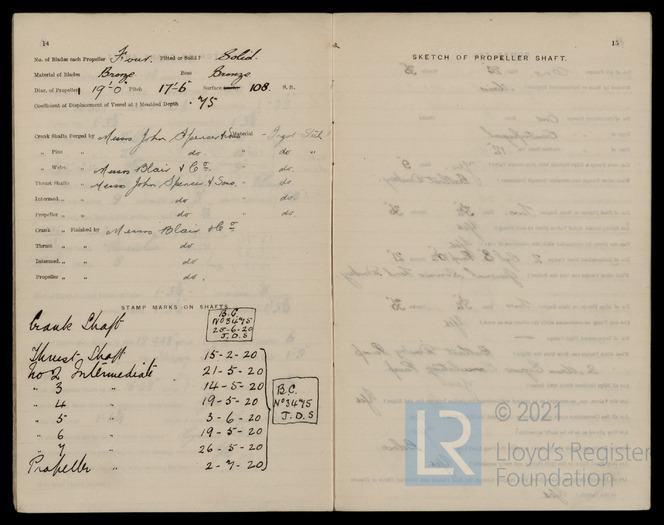 14
No. of Blades each Propeller Four. Fitted or Solid? Solid.
Material of Blades Bronze Boss Bronze
Diam. of Propeller 19-0 Pitch 17-6 Surface 108. S.F.
Coefficient of Displacement of Vessel at ¾ Moulded Depth .75
Crank Shafts Forged by Messrs John Spencer & Sons Material - Ingot Steel
„ Pins „ do. „ do „
„ Webs „ Messrs Blair & Co. „ do.
Thrust Shafts „ Messrs John Spencer & Sons. „ do.
Intermed. „ „ do „ do.
Propeller „ „ do „ do.
Crank „ Finished by Messrs Blair & Co
Thrust „ „ do
Intermed. „ „ do
Propeller „ „ do.
STAMP MARKS ON SHAFTS.
Crank Shaft
B.C.
No 3475
25-6-20
J.D.S
Thrust Shaft 15-2-20
No 2 Intermediate 21-5-20
„ 3 „ 14-5-20
„ 4 „ 19-5-20
„ 5 „ 3-6-20
„ 6 „ 19-5-20
„ 7 „ 26-5-20
Propeller „ 2-7-20
B.C.
No 3475
J.D.S
15
SKETCH OF PROPELLER SHAFT.
LR
© 2021
Lloyd's Register
Foundation